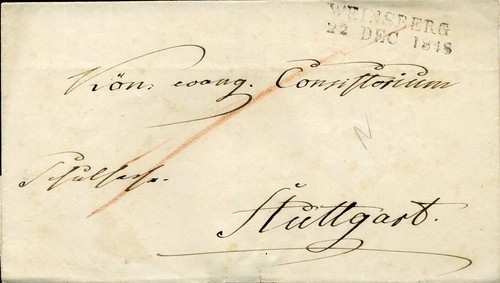 WEINSBERG
22 DEC 1848
Kön: evang. Consistorium
Schulsache.
Stuttgart.